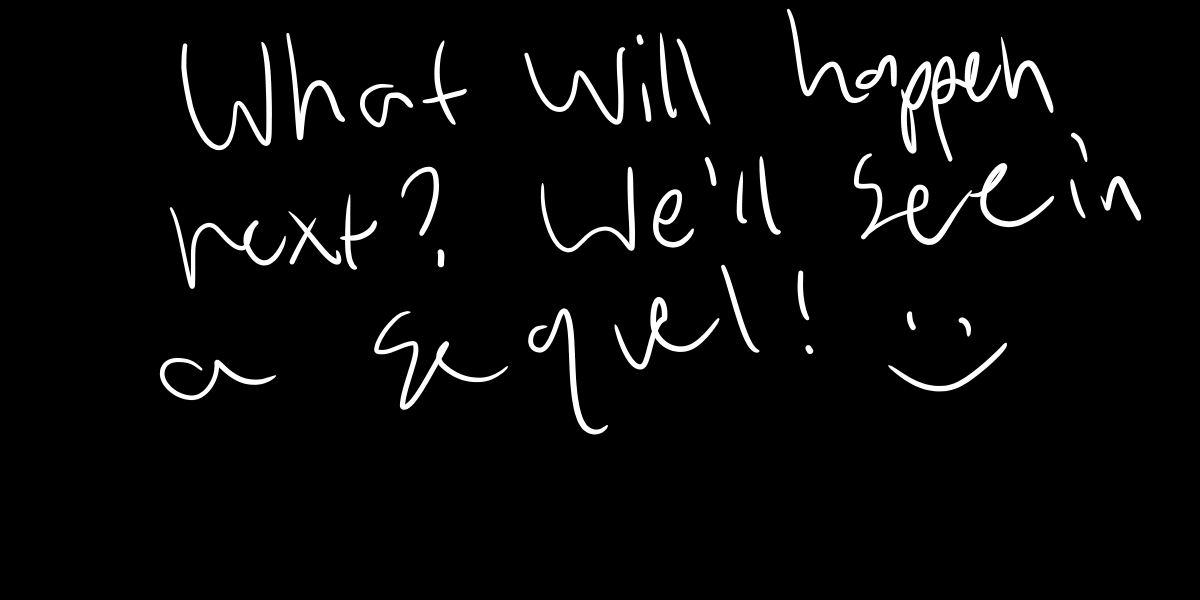 What will happen
next? We'll see in
a sequel! :)